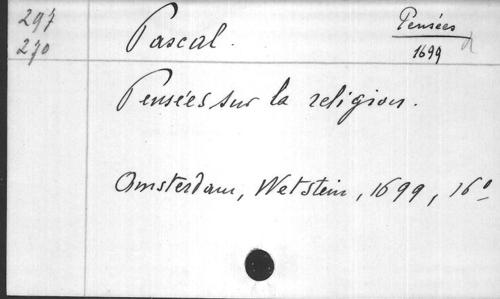 297
270
Pascal.
Pensées
1699
Pensées sur la religion.
Amsterdam, Wetstein, 1699, 16°